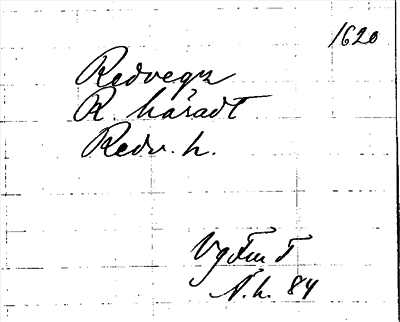 1620
Redvegz
R. håradt
Redv. h.
VgFmT
N.h. 84